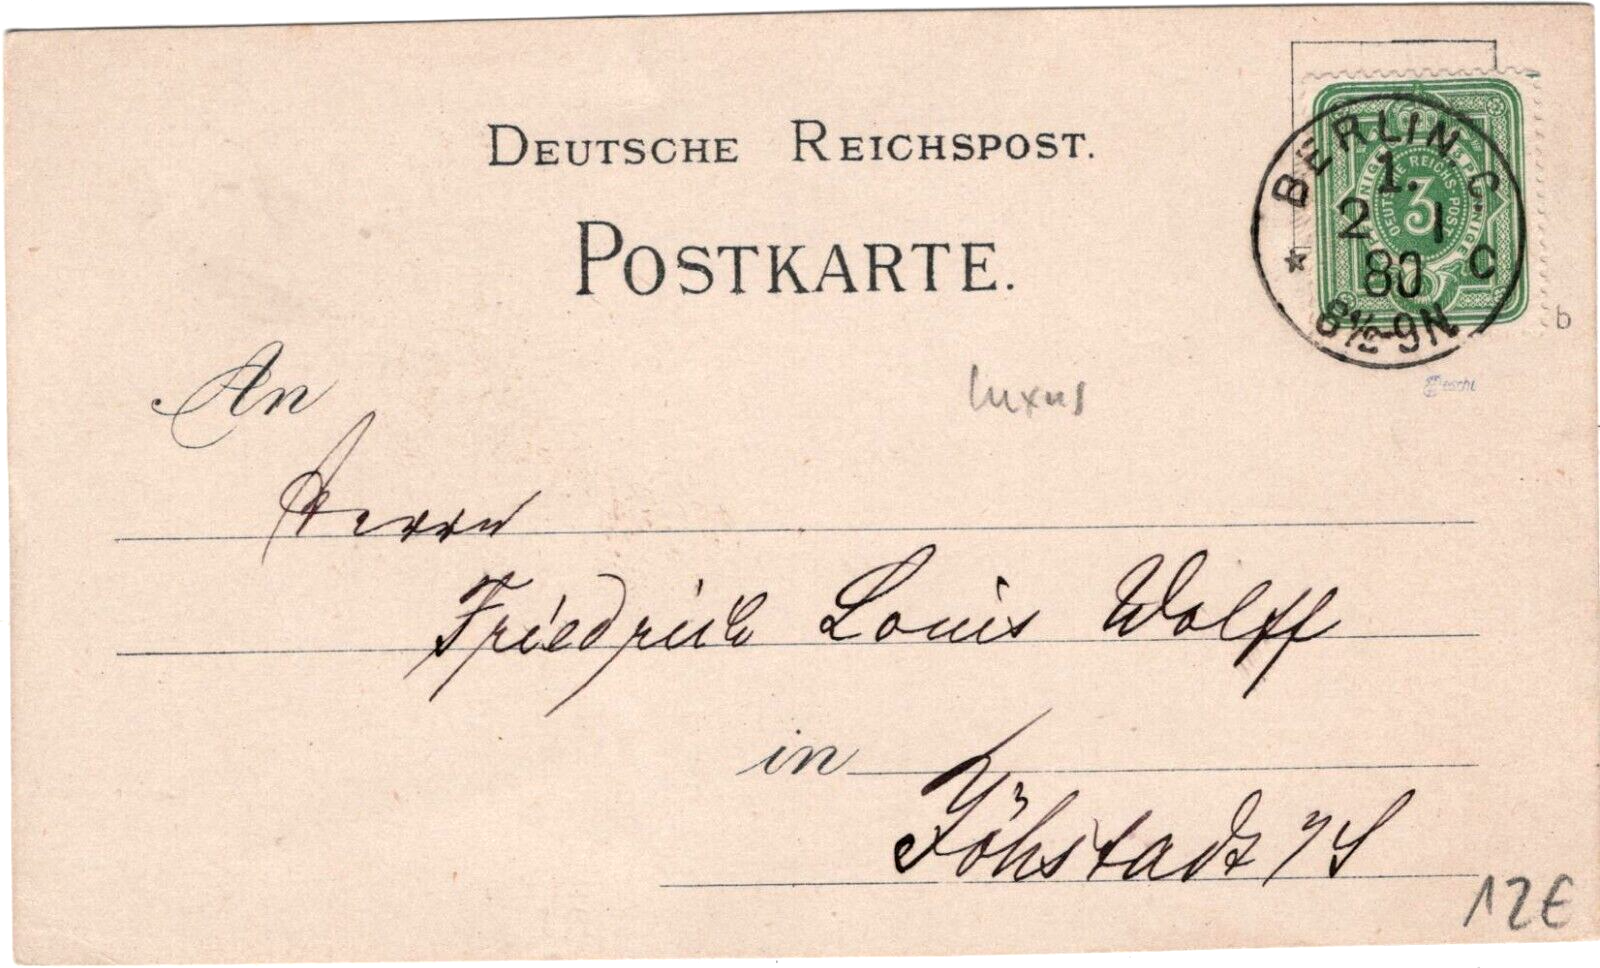 DEUTSCHE REICHSPOST.
POSTKARTE.
BERLIN, C.
1.
2 1
80 C
8½-9N
DEUTSCHE REICHS-POST
3
b
luxus
An
Herrn
Friedrich Louis Wolff
in
Jöhstadt i/S
12€